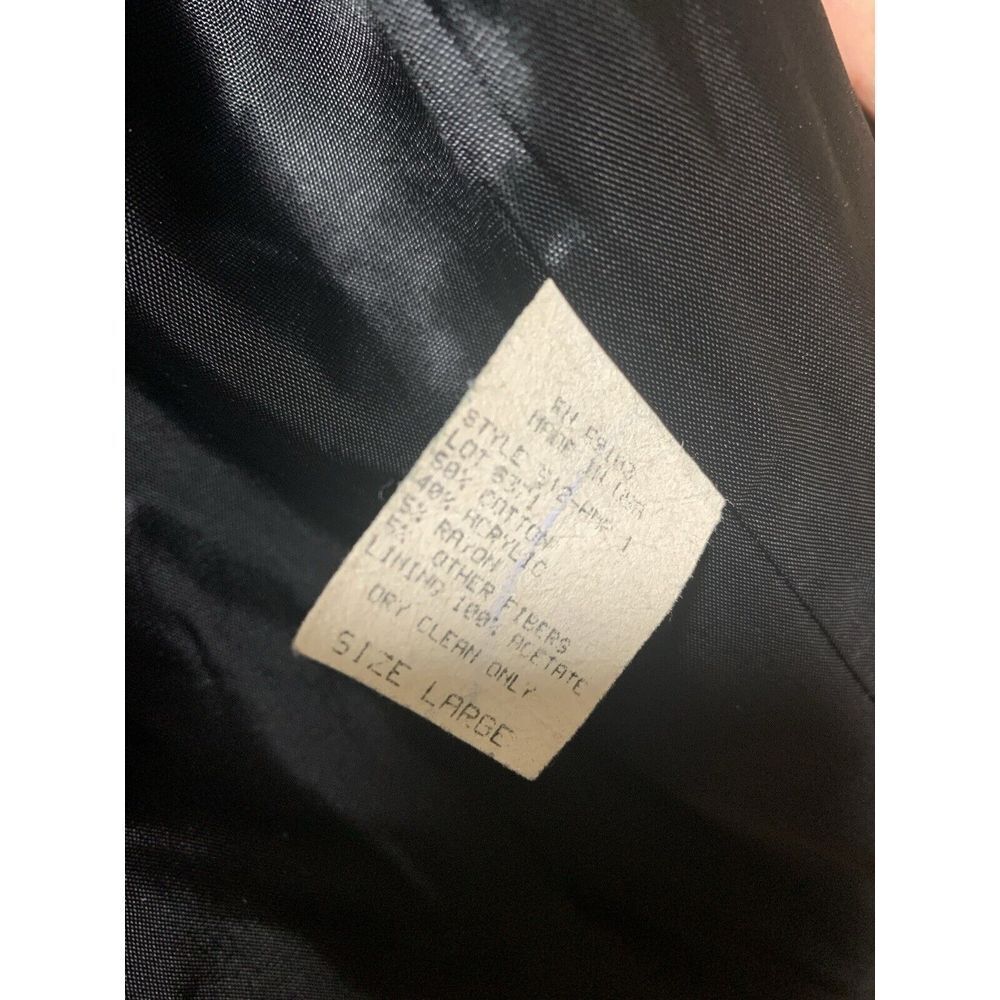 RN
MADE IN USA
STYLE
LOT 63-1
50% COTTON
40% ACRYLIC
5% RAYON
5% OTHER FIBERS
LINING 100% ACETATE
DRY CLEAN ONLY
SIZE LARGE